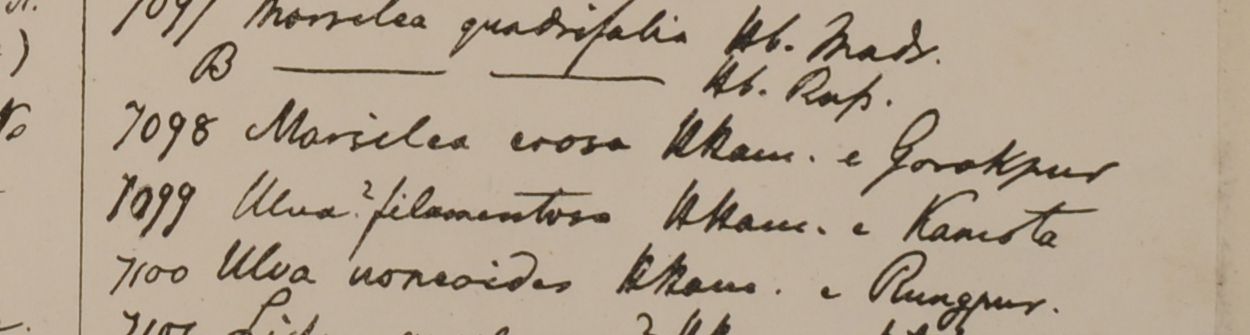 7097 Marsilea quadrifolia Hb. Madr.
B ——— ——— Hb. Rup.
7098 Marsilea erosa HHam. e Gorakpur
7099 Ulva? filamentosa HHam. e Kamota
7100 Ulva HHam. e Rungpur.
7101